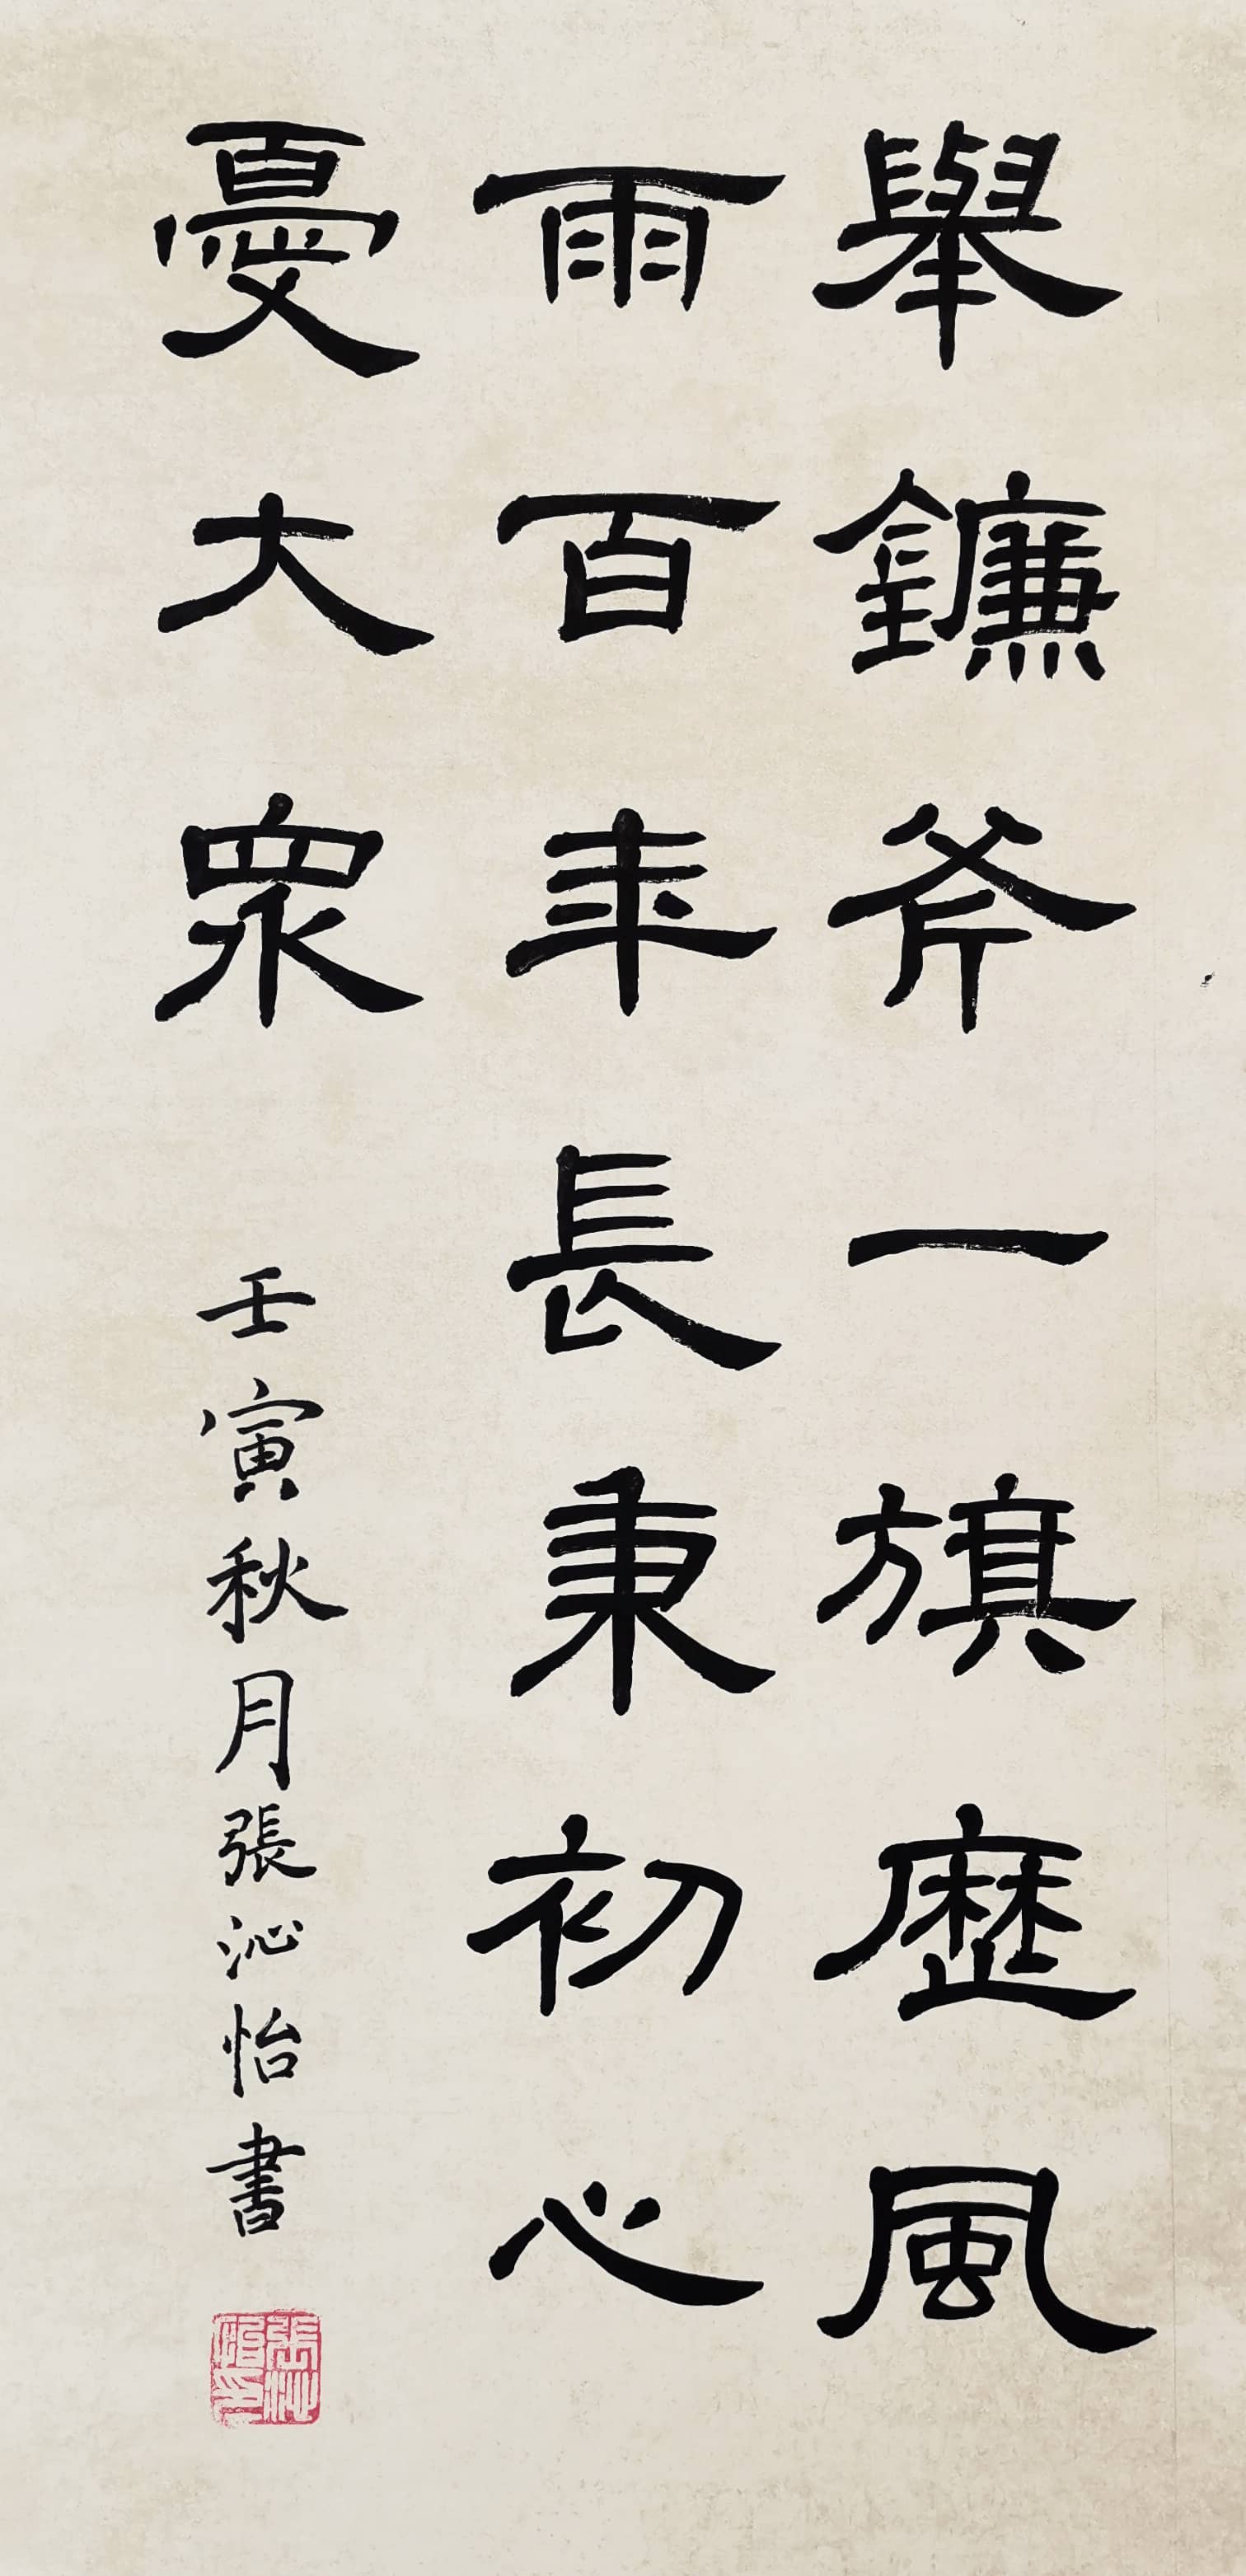 舉鐮斧一旗歷風
雨百年長秉初心
憂大衆
壬寅秋月張沁怡書
張沁怡印